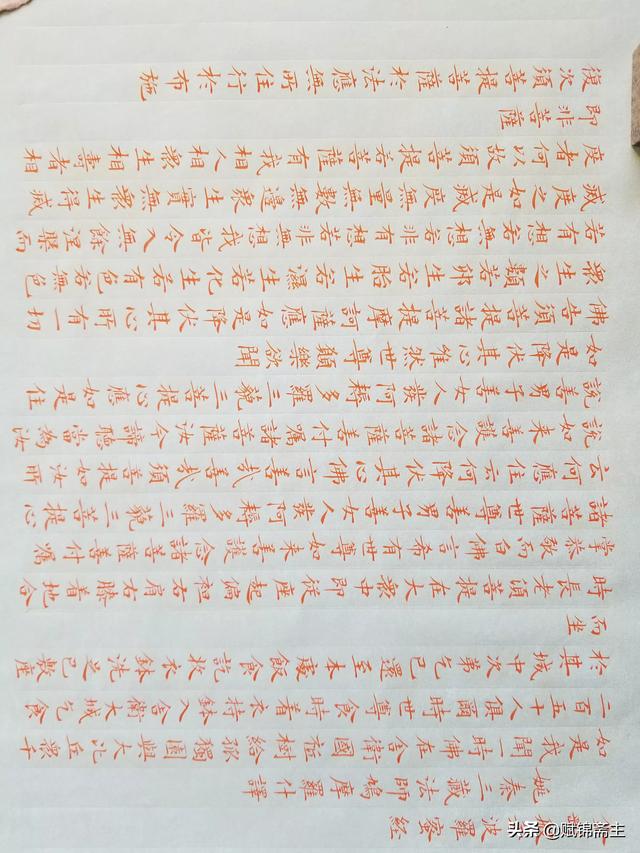 波羅蜜經
姚秦三藏法師鳩摩羅什譯
如是我聞一時佛在舍衛國祇樹給孤獨園與大比丘眾千
二百五十人俱爾時世尊食時着衣持鉢入舍衛大城乞食
於其城中次第乞已還至本處飯食訖收衣鉢洗足已敷座
而坐
時長老須菩提在大眾中即從座起偏袒右肩右膝着地合
掌恭敬而白佛言希有世尊如来善護念諸菩薩善付囑
諸菩薩世尊善男子善女人發阿耨多羅三藐三菩提心
云何應住云何降伏其心佛言善哉善哉須菩提如汝所
說如来善護念諸菩薩善付囑諸菩薩汝今諦聽當為汝
說善男子善女人發阿耨多羅三藐三菩提心應如是住
如是降伏其心唯然世尊願樂欲聞
佛告須菩提諸菩薩摩訶薩應如是降伏其心所有一切
眾生之類若卵生若胎生若濕生若化生若有色若無色
若有想若無想若非有想非無想我皆令入無餘涅槃而
滅度之如是滅度無量無數無邊眾生實無眾生得滅
度者何以故須菩提若菩薩有我相人相眾生相壽者相
即非菩薩
復次須菩提菩薩於法應無所住行於布施
头条 @赋锦斋主